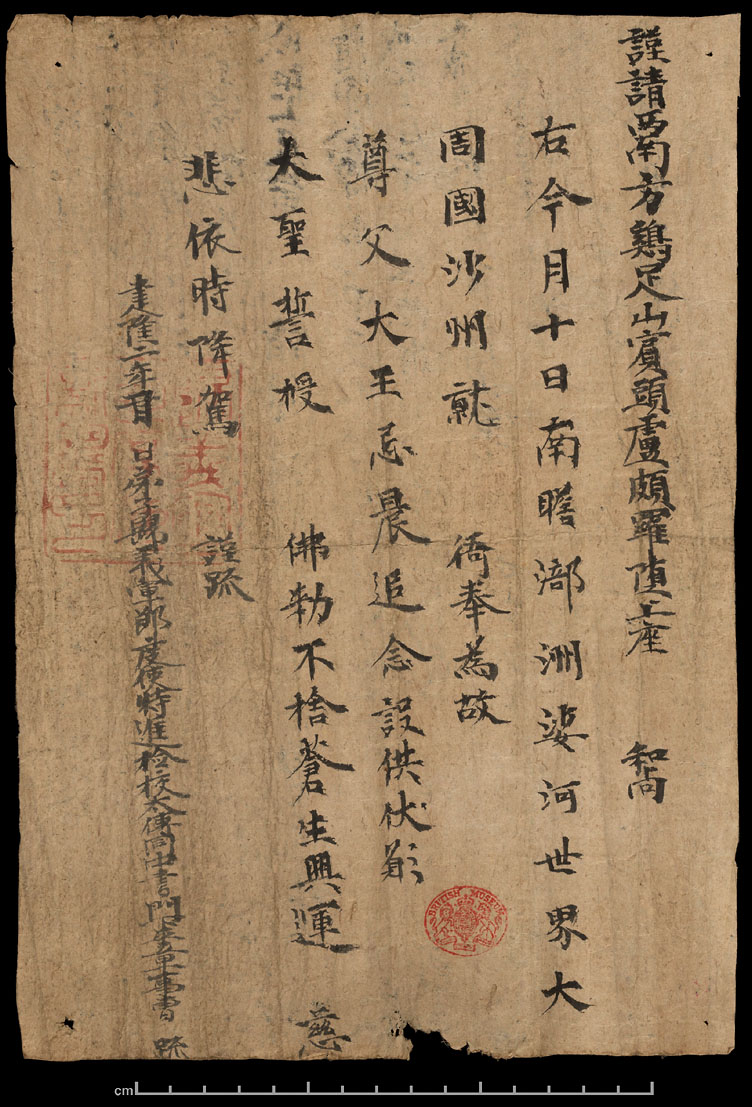 謹請西南方鷄足山賓頭盧頗羅墮上座 和尚
右今月十日南瞻部洲娑河世界大
周國沙州就 衙奉為故
尊父大王忌晨追念設供伏願
大聖誓授 佛勑不捨蒼生興運 慈
悲依時降駕 謹䟽
建隆二年 月 日弟子歸義軍節度使特進檢校太傅同中書門下平章事曹 䟽
BRITISH MUSEUM
cm